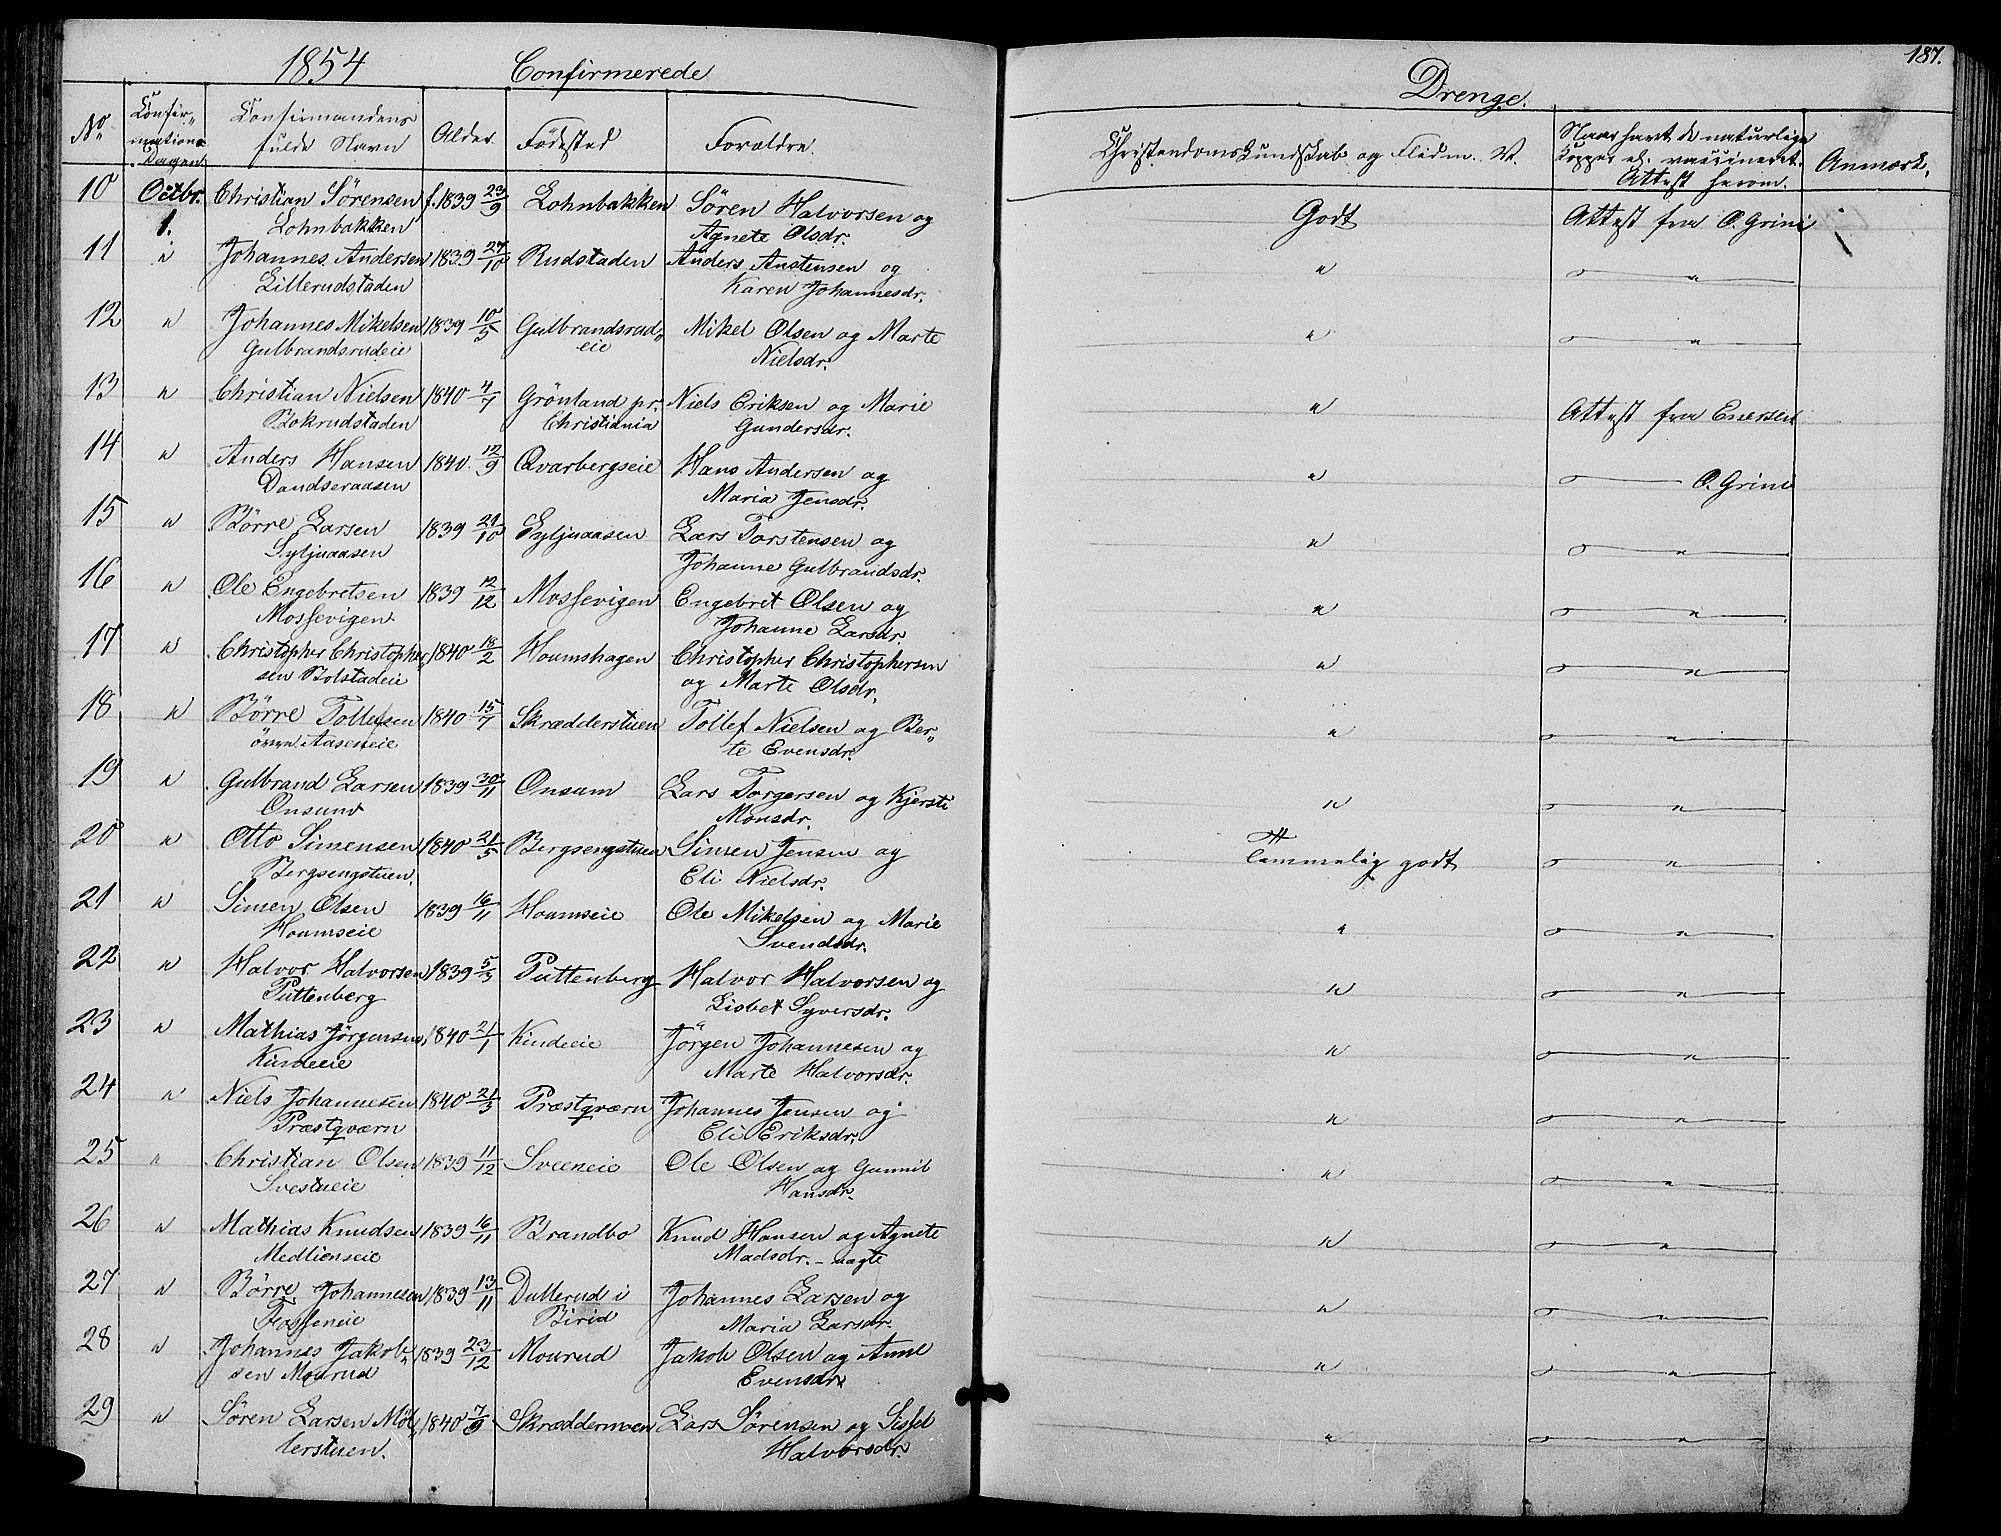 1854 Confirmerede
Drenge. 187.
No Confir-mations Dagen Confirmandens fulde Navn Alder Födested Forældre.
Christendoms Kundskab og Flidm. V. Naar havt de naturlige Kopper el. vaccineret. Attest herom. Anmærk.
10 Octbr. Christian Sörensen f. 1839 23/9 Lohnbakken Sören Halvorsen og Godt Attest fra O. Grini
1. Lohnbakken Agnete Olsdr.
11 " Johannes Andersen 1839 27/10 Rudstaden Anders Anstensen og " — " —
Lillerudstaden Karen Johannesdr.
12 " Johannes Mikelsen 1839 10/5 Gulbrandsrud„ Mikel Olsen og Marte " — " —
Gulbrandsrudeie eie Nielsdr.
13 " Christian Nielsen 1840 4/7 Grönland pr. Niels Eriksen og Marie " Attest fra Enersen
Bokrudstaden Christiania Gundersdr.
14 " Anders Hansen 1840 12/9 Qvarbergseie Hans Andersen og " — O. Grini
Dandseraasen Maria Jensdr.
15 " Börre Larsen 1839 21/10 Syljuaasen Lars Torstensen og " — " —
Syljuaasen Johanne Gulbrandsdr.
16 " Ole Engebretsen 1839 12/12 Mossevigen Engebret Olsen og " — " —
Mossevigen Johanne Larsdr.
17 " Christopher Christopher„ 1840 18/2 Houmshagen Christopher Christophersen " — " —
sen Bolstadeie og Marte Olsdr.
18 " Börre Tollefsen 1840 15/7 Skrædderstuen Tollef Nielsen og Ber„ " — " —
övre Aaseneie te Evensdr.
19 " Gulbrand Larsen 1839 30/11 Onsum Lars Torgersen og Kjersti " — " —
Onsum Monsdr.
20 " Otto Simensen 1840 21/5 Bergsengstuen Simen Jensen og Temmelig godt — " —
Bergsengstuen. Eli Nielsdr.
21 " Simen Olsen 1839 16/11 Houmseie Ole Mikelsen og Marie " — " —
Houmseie Svendsdr.
22 " Halvor Halvorsen 1839 5/3 Puttenberg Halvor Halvorsen og " — " —
Puttenberg Lisbet Syversdr.
23 " Mathias Jörgensen 1840 21/1 Kindeeie Jörgen Johannesen og " — " —
Kindeeie Marte Halvorsdr.
24 " Niels Johannesen 1840 21/3 Præstqværn Johannes Jensen og " — " —
Præstqværn Eli Eriksdr.
25 " Christian Olsen 1839 11/12 Sveeneie Ole Olsen og Gunnil " — " —
Svestueie Hansdr.
26 " Mathias Knudsen 1839 16/11 Brandbo Knud Hansen og Agnete " — " —
Medlienseie Madsdr. - uægte
27 " Börre Johannesen 1839 13/11 Dullerud i Johannes Larsen og " — " —
Fosseneie Birid Maria Larsdr.
28 " Johannes Jakob„ 1839 23/12 Mourud Jakob Olsen og Anne " — " —
sen Mourud Evensdr.
29 " Sören Larsen Möl„ 1840 7/9 Skræddermoen Lars Sörensen og Sissel " — " —
lerstuen. Halvorsdr.